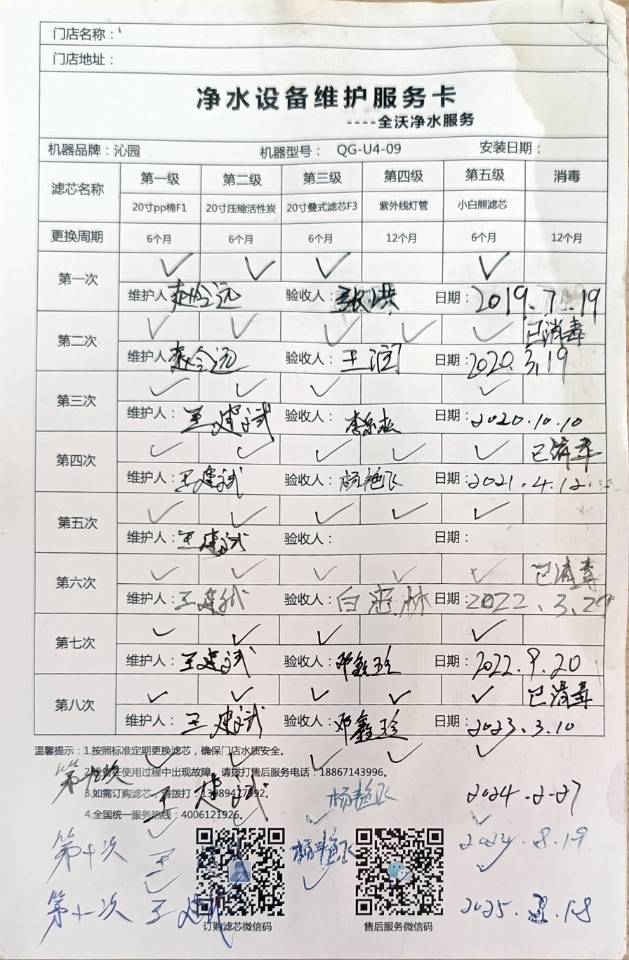 门店名称：
门店地址：
净水设备维护服务卡
----全沃净水服务
机器品牌：沁园 机器型号： QG-U4-09 安装日期：
滤芯名称 第一级 第二级 第三级 第四级 第五级 消毒
20寸pp棉F1 20寸压缩活性炭 20寸叠式滤芯F3 紫外线灯管 小白熊滤芯
更换周期 6个月 6个月 6个月 12个月 6个月 12个月
第一次 ✓ ✓ ✓ ✓
维护人： 验收人：张洪 日期：2019.7.19
第二次 ✓ ✓ ✓ ✓ ✓ 已消毒
维护人： 验收人：王润 日期：2020.3.19
第三次 ✓ ✓ ✓ ✓
维护人：王建斌 验收人： 日期：2020.10.10
第四次 ✓ ✓ ✓ ✓ ✓ 已消毒
维护人：王建斌 验收人：杨艳飞 日期：2021.4.12.
第五次 ✓ ✓ ✓ ✓ ✓
维护人：王建斌 验收人： 日期：
第六次 ✓ ✓ ✓ ✓ ✓ 已消毒
维护人：王建斌 验收人：白 林 日期：2022.3.2
第七次 ✓ ✓ ✓ ✓
维护人：王建斌 验收人：邓鑫珍 日期：2022.9.20
第八次 ✓ ✓ ✓ ✓ ✓ 已消毒
维护人：王建斌 验收人：邓鑫珍 日期：2023.3.10
温馨提示：1.按照标准定期更换滤芯，确保门店水质安全。
使用过程中出现故障，请拨打售后服务电话：18867143996。
3.如需订购滤芯，请拨打：
4.全国统一服务热线：4006121926.
第九次 王建斌 杨艳飞 2024.2-27
第十次 王 杨艳飞 2024.8.19
第十一次 王建斌 2025. .18
订购滤芯微信码 售后服务微信码